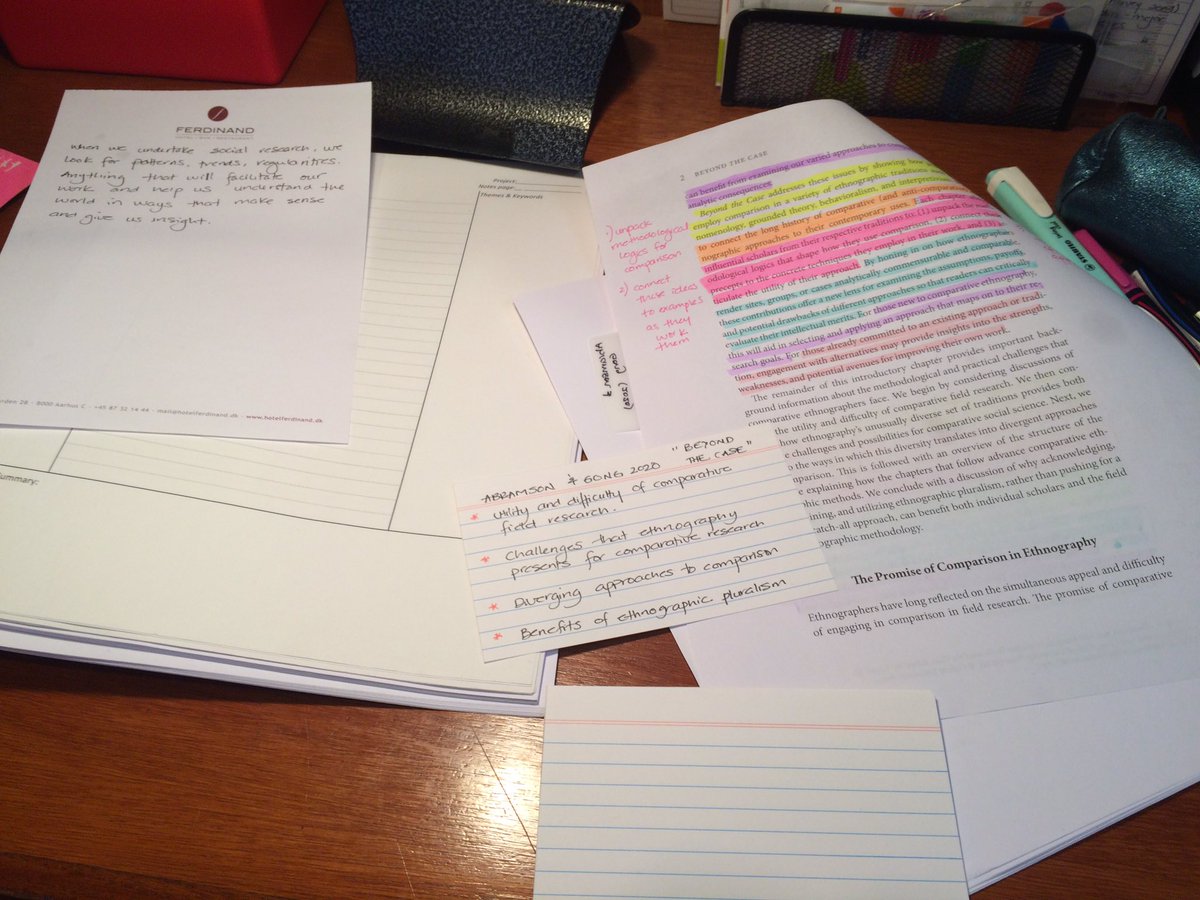 FERDINAND
HOTEL • BAR • RESTAURANT
When we undertake social research, we
look for patterns, trends, regularities.
Anything that will facilitate our
work and help us understand the
world in ways that make sense
and give us insight.
8000 Aarhus C · +45 87 32 14 44 · mail@hotelferdinand.dk · www.hotelferdinand.dk
Project:
Notes page
Themes & Keywords
Summary:
2 BEYOND THE CASE
can benefit from examining our varied approaches to
analytic consequences.
Beyond the Case addresses these issues by showing how
employ comparison in a variety of ethnographic traditions
nomenology, grounded theory, behavioralism, and
to connect the long history of comparative (and
nographic approaches to their contemporary uses. Each chapter
influential scholars from their respective traditions to: (1) unpack
odological logics that shape how they use comparison, (2) connect
precepts to the concrete techniques they employ in their work, and (3)
ticulate the utility of their approach. By honing in on how ethnographers
render sites, groups, or cases analytically commensurable and comparable,
these contributions offer a new lens for examining the assumptions, payoffs,
and potential drawbacks of different approaches so that readers can critically
evaluate their intellectual merits. For those new to comparative ethnography,
this will aid in selecting and applying an approach that maps on to their re-
search goals. For those already committed to an existing approach or tradi-
tion, engagement with alternatives may provide insights into the strengths,
weaknesses, and potential avenues for improving their own work.
The remainder of this introductory chapter provides important back-
ground information about the methodological and practical challenges that
comparative ethnographers face. We begin by considering discussions of
the utility and difficulty of comparative field research. We then con-
how ethnography's unusually diverse set of traditions provides both
challenges and possibilities for comparative social science. Next, we
the ways in which this diversity translates into divergent approaches
This is followed by an overview of the structure of the
explaining how the chapters that follow advance comparative eth-
methods. We conclude with a discussion of why acknowledging,
and utilizing ethnographic pluralism, rather than pushing for a
approach, can benefit both individual scholars and the field
methodology.
The Promise of Comparison in Ethnography
Ethnographers have long reflected on the simultaneous appeal and difficulty
of engaging in comparison in field research. The promise of comparative
1) unpack
methodological
logics for
comparison
2) connect
those ideas
to examples
as they
work
them
Abramson &
Gong (2020)
ABRAMSON & GONG 2020 "BEYOND
THE CASE"
* Utility and difficulty of comparative
field research.
* Challenges that ethnography
presents for comparative research
* Diverging approaches to comparison
* Benefits of ethnographic pluralism
STABILO